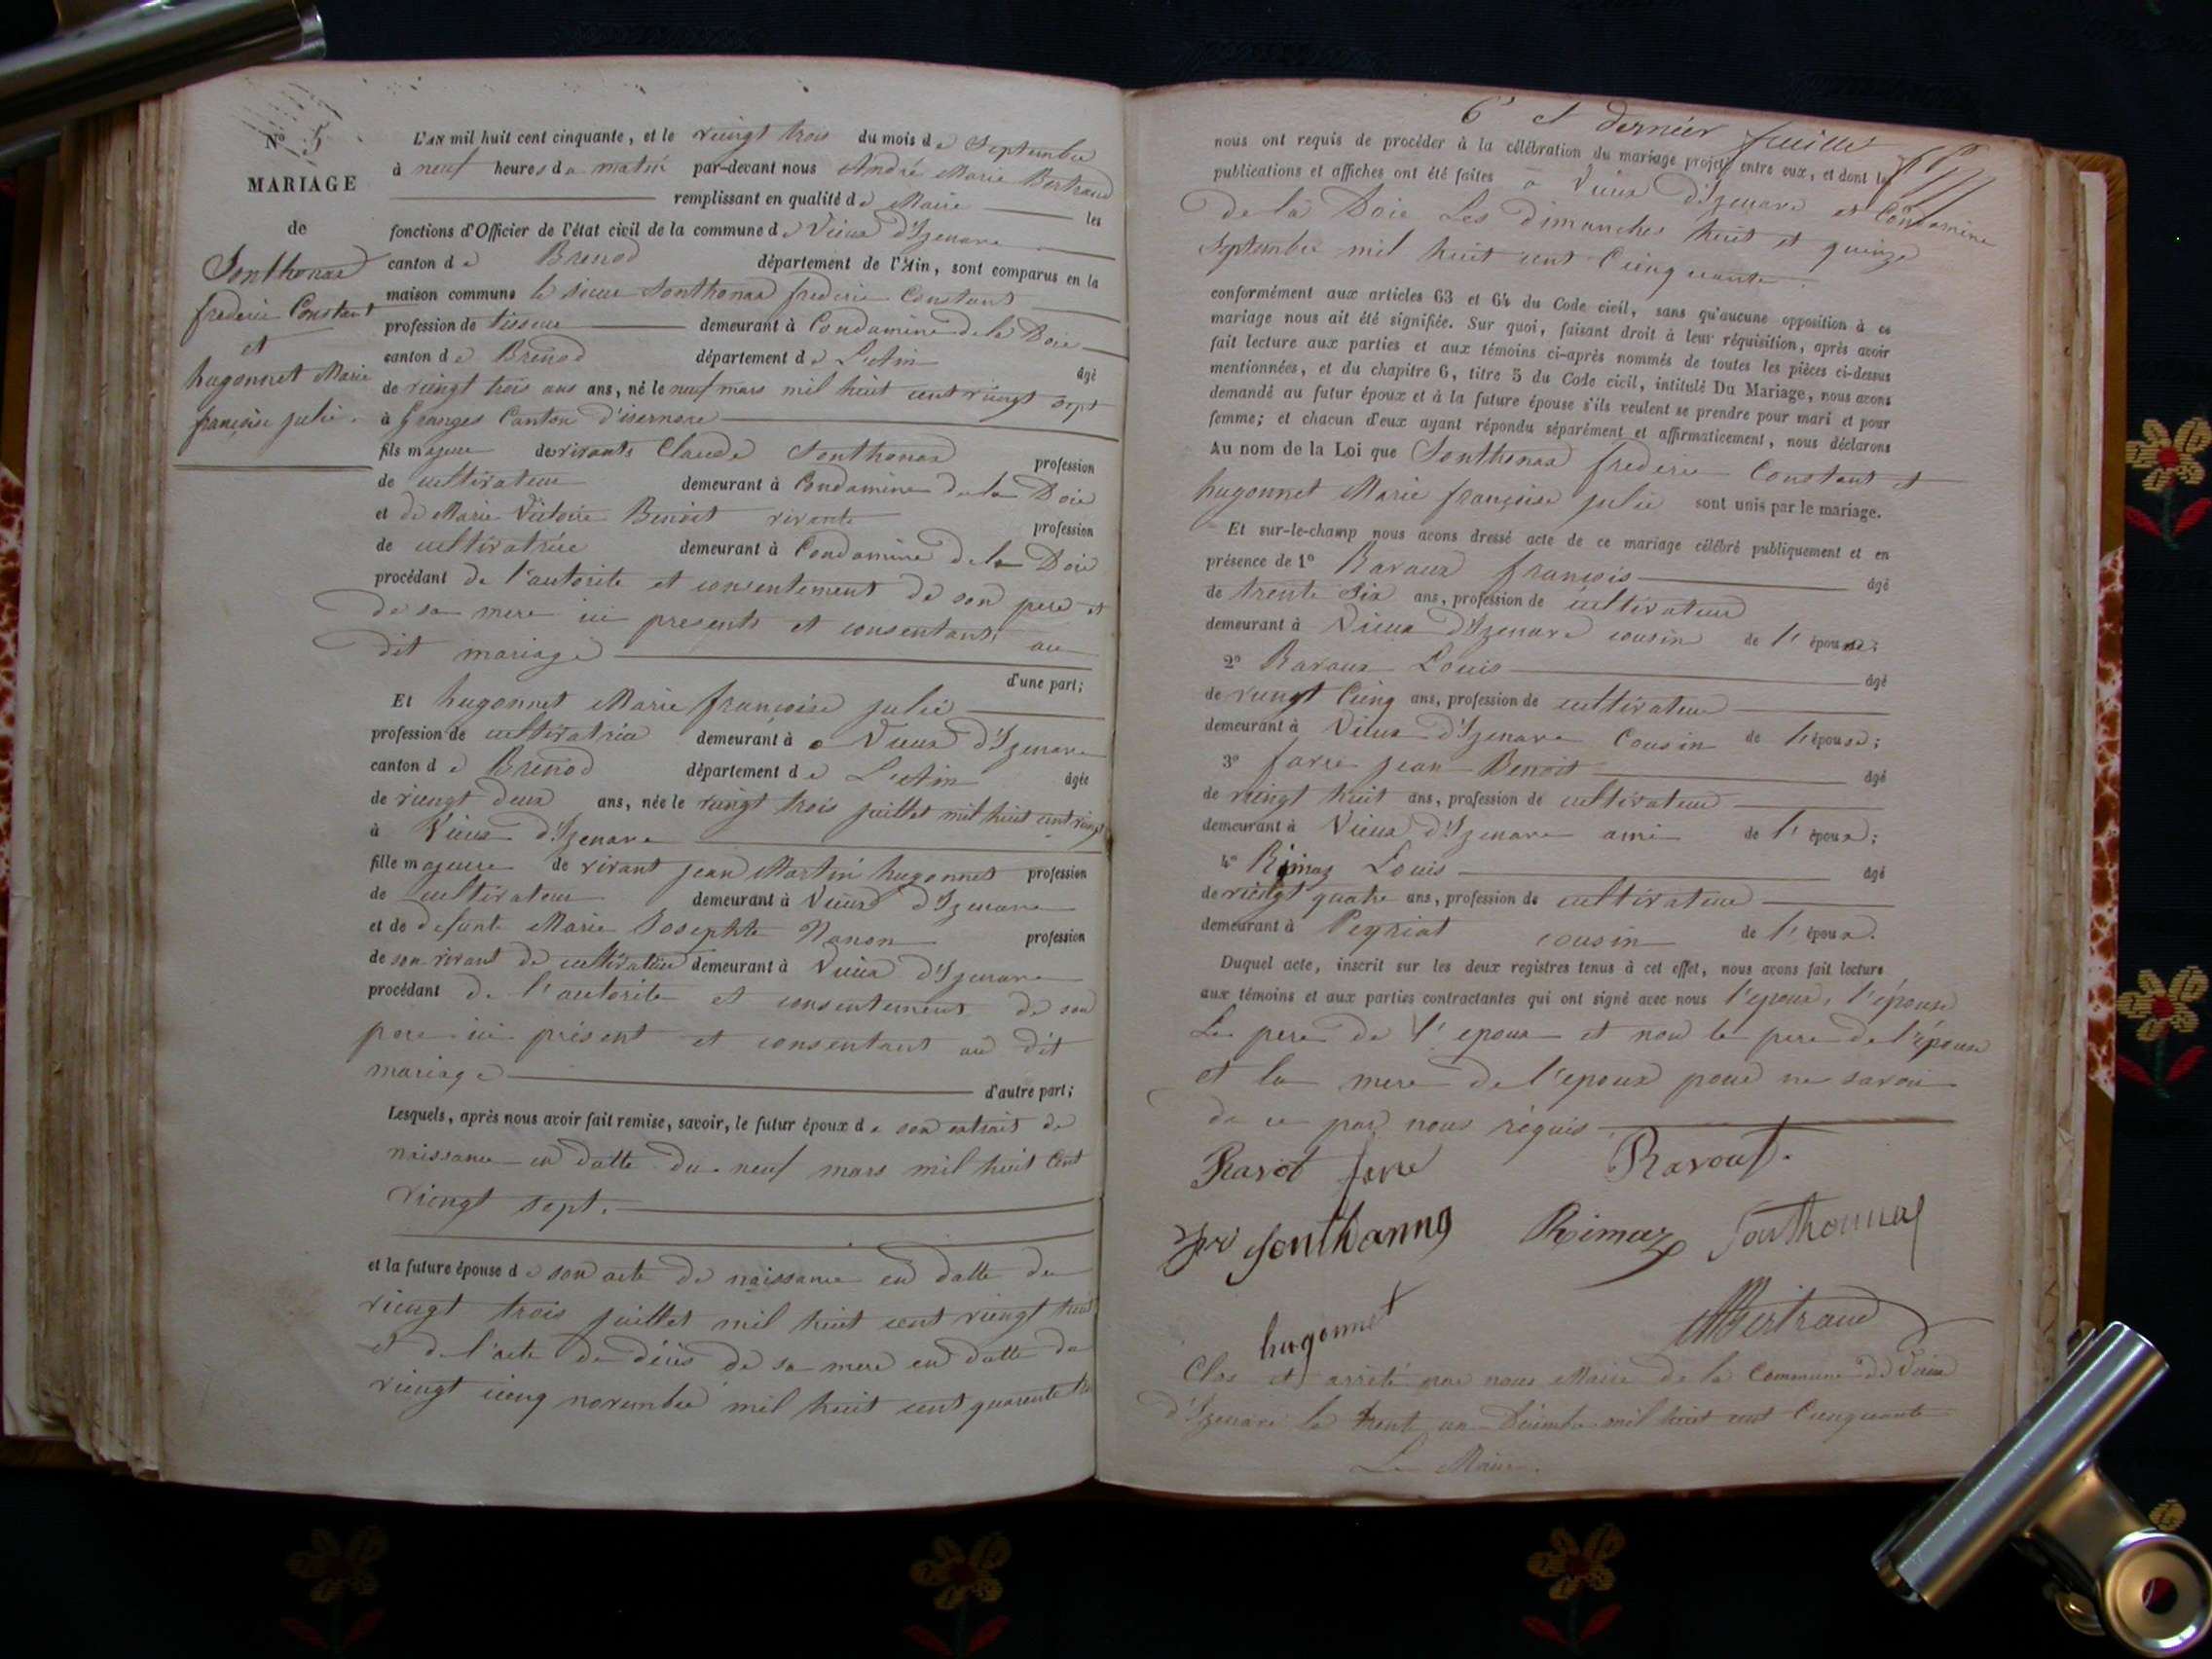 N° 5
MARIAGE
de
Sonthonax
frederic Constant
et
hugonnet Marie
françoise julie.
L'AN mil huit cent cinquante, et le vingt trois du mois de Septembre
à neuf heures du matin par-devant nous André Marie Bertrand
remplissant en qualité de Maire les
fonctions d'Officier de l'état civil de la commune de Vieux d'Izenave
canton de Brenod département de l'Ain, sont comparus en la
maison commune le sieur Sonthonax frederic Constant
profession de tisseur demeurant à Condamine de la Doie
canton de Brenod département de L'Ain âgé
de vingt trois ans ans, né le neuf mars mil huit cent vingt sept
à Granges Canton d'isernore
fils majeur des vivants Claude Sonthonax profession
de cultivateur demeurant à Condamine de la Doie
et de Marie Victoire Benoit vivante profession
de cultivatrice demeurant à Condamine de la Doie
procédant de l'autorité et consentement de son pere et
de sa mere ici presents et consentants au
dit mariage
d'une part;
Et hugonnet Marie françoise julie
profession de cultivatrice demeurant à a Vieux d'Izenave
canton de Brenod département de L'Ain âgée
de vingt deux ans, née le vingt trois juillet mil huit cent vingt
à Vieux d'Izenave
fille majeure de vivant jean Martin hugonnet profession
de cultivateur demeurant à Vieux d'Izenave
et de defunte Marie Josephte profession
de son vivant de cultivatrice demeurant à Vieux d'Izenave
procédant de l'autorité et consentement de son
pere ici présent et consentant au dit
mariage
d'autre part;
Lesquels, après nous avoir fait remise, savoir, le futur époux de son extrait de
naissance en datte du neuf mars mil huit cent
vingt sept.
et la future épouse de son acte de naissance en datte du
vingt trois juillet mil huit cent vingt huit
et de l'acte de décès de sa mere en datte du
vingt cinq novembre mil huit cent quarante
6e et dernier feuille
nous ont requis de procéder à la célébration du mariage projeté entre eux, et dont les
publications et affiches ont été faites à Vieux d'Izenave et Condamine
de la Doie Les dimanches huit et quinze
Septembre mil huit cent Cinquante.
conformément aux articles 63 et 64 du Code civil, sans qu'aucune opposition à ce
mariage nous ait été signifiée. Sur quoi, faisant droit à leur réquisition, après avoir
fait lecture aux parties et aux témoins ci-après nommés de toutes les pièces ci-dessus
mentionnées, et du chapitre 6, titre 5 du Code civil, intitulé Du Mariage, nous avons
demandé au futur époux et à la future épouse s'ils veulent se prendre pour mari et pour
femme; et chacun d'eux ayant répondu séparément et affirmativement, nous déclarons
Au nom de la Loi que Sonthonax frederic Constant et
hugonnet Marie françoise julie sont unis par le mariage.
Et sur-le-champ nous avons dressé acte de ce mariage célébré publiquement et en
présence de 1° Ravaux françois âgé
de trente Six ans, profession de cultivateur
demeurant à Vieux d'Izenave cousin de l'épouse;
2° Ravaux Louis âgé
de vingt Cinq ans, profession de cultivateur
demeurant à Vieux d'Izenave Cousin de l'épouse;
3° favre jean Benoit âgé
de vingt huit ans, profession de cultivateur
demeurant à Vieux d'Izenave ami de l'époux;
4° Rimaz Louis âgé
de vingt quatre ans, profession de cultivateur
demeurant à Peyriat cousin de l'époux.
Duquel acte, inscrit sur les deux registres tenus à cet effet, nous avons fait lecture
aux témoins et aux parties contractantes qui ont signé avec nous l'epoux, l'épouse
Le pere de l'epoux et non le pere de l'épouse
et la mere de l'epoux pour ne savoir
de ce par nous réquis.
favre
Sonthonna Rimaz Sonthonnax
hugonnet
Bertrand
Clos et arrêté par nous Maire de la Commune de Vieux
d'Izenave le trente un Décembre mil huit cent Cinquante
Le Maire.